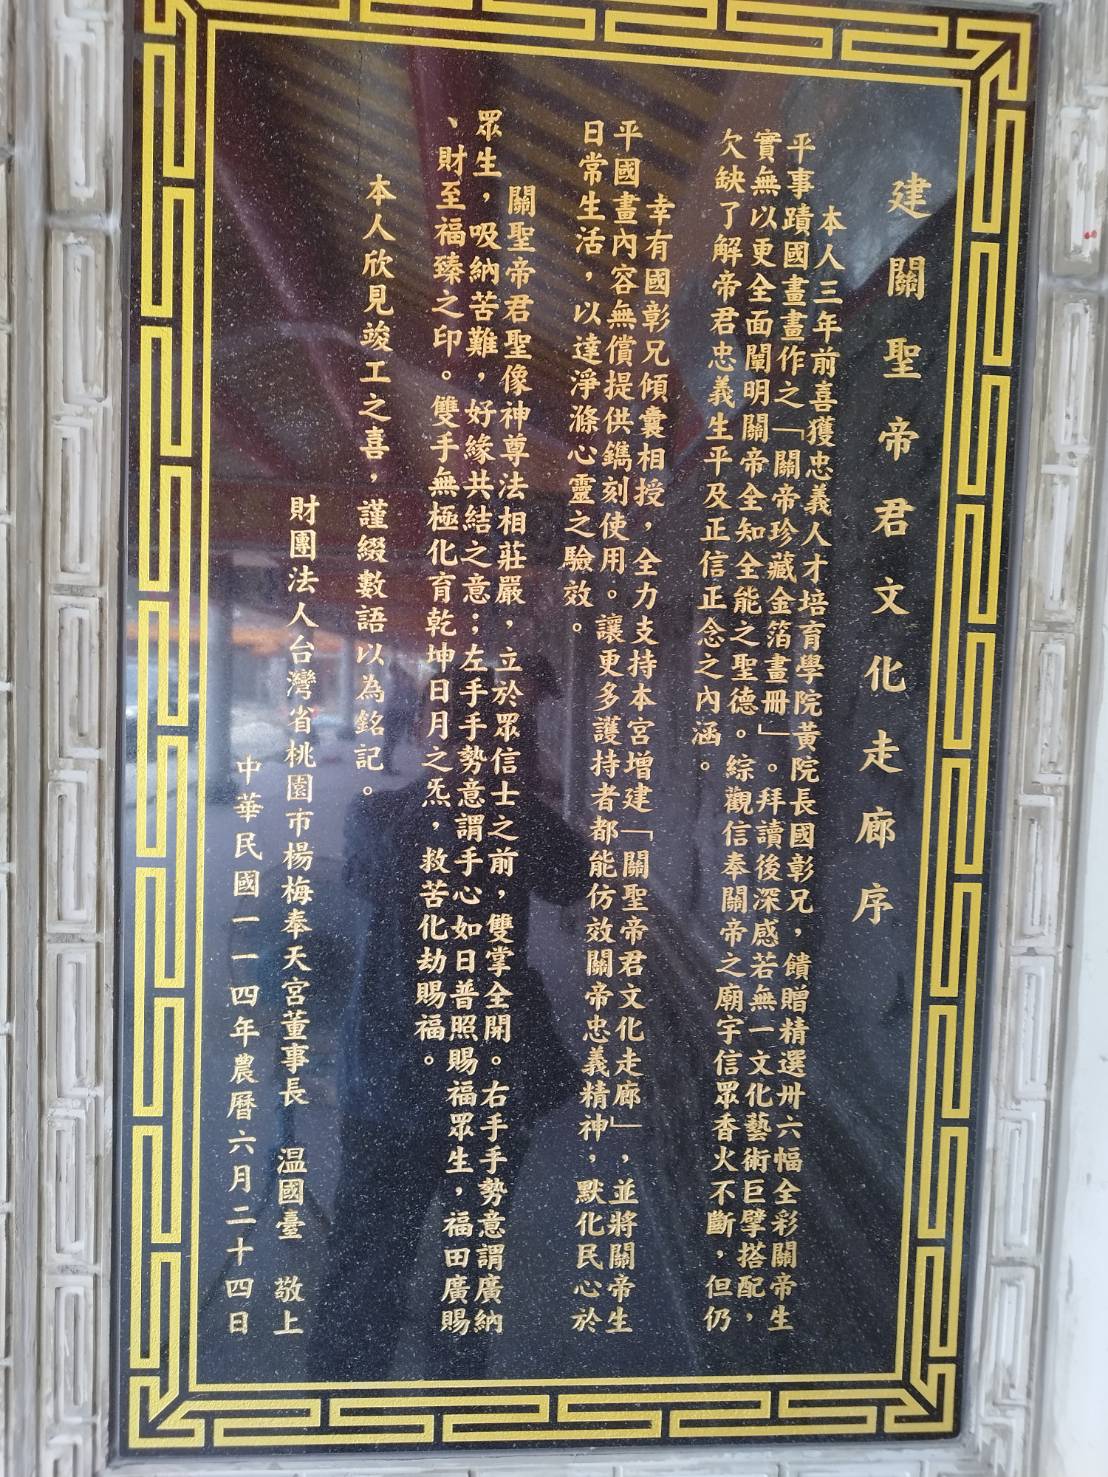 建關聖帝君文化走廊序
本人三年前喜獲忠義人才培育學院黃院長國彰兄，饋贈精選卅六幅全彩關帝生
平事蹟國畫畫作之「關帝珍藏金箔畫冊」。拜讀後深感若無一文化藝術巨擘搭配，
實無以更全面闡明關帝全知全能之聖德。綜觀信奉關帝之廟宇信眾香火不斷，但仍
欠缺了解帝君忠義生平及正信正念之內涵。
幸有國彰兄傾囊相授，全力支持本宮增建「關聖帝君文化走廊」，並將關帝生
平國畫內容無償提供鐫刻使用。讓更多護持者都能仿效關帝忠義精神，默化民心於
日常生活，以達淨滌心靈之驗效。
關聖帝君聖像神尊法相莊嚴，立於眾信士之前，雙掌全開。右手手勢意謂廣納
眾生，吸納苦難，好緣共結之意；左手手勢意謂手心如日普照賜福眾生，福田廣賜
、財至福臻之印。雙手無極化育乾坤日月之炁，救苦化劫賜福。
本人欣見竣工之喜，謹綴數語以為銘記。
財團法人台灣省桃園市楊梅奉天宮董事長　温國臺　敬上
中華民國一一四年農曆六月二十四日